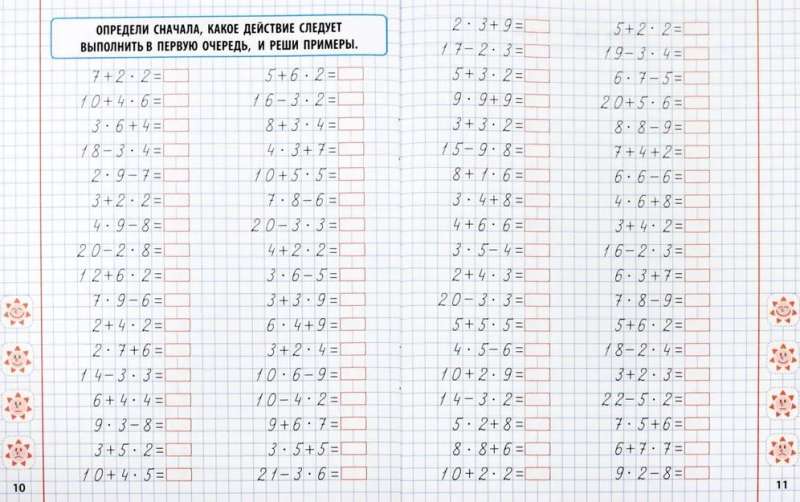 ОПРЕДЕЛИ СНАЧАЛА, КАКОЕ ДЕЙСТВИЕ СЛЕДУЕТ
ВЫПОЛНИТЬ В ПЕРВУЮ ОЧЕРЕДЬ, И РЕШИ ПРИМЕРЫ.
7+2·2=
10+4·6=
3·6+4=
18-3·4=
2·9-7=
3+2·2=
4·9-8=
20-2·8=
12+6·2=
7·9-6=
2+4·2=
2·7+6=
14-3·3=
6+4·4=
9·3-8=
3+5·2=
10+4·5=
5+6·2=
16-3·2=
8+3·4=
4·3+7=
10+5·5=
7·8-6=
20-3·3=
4+2·2=
3·6-5=
3+3·9=
6·4+9=
3+2·4=
10·6-9=
10-4·2=
9+6·7=
3·5+5=
21-3·6=
10
2·3+9=
17-2·3=
5+3·2=
9·9+9=
3+3·2=
15-9·8=
8+1·6=
3·4+8=
4+6·6=
3·5-4=
2+4·3=
20-3·3=
5+5·5=
4·5-6=
10+2·9=
14-3·2=
5·2+8=
8·8+6=
10+2·2=
5+2·2=
19-3·4=
6·7-5=
20+5·6=
8·8-9=
7+4+2=
6·6-6=
4·6+8=
3+4·2=
16-2·3=
6·3+7=
7·8-9=
5+6·2=
18-2·4=
3+2·3=
22-5·2=
7·5+6=
6+7·7=
9·2-8=
11